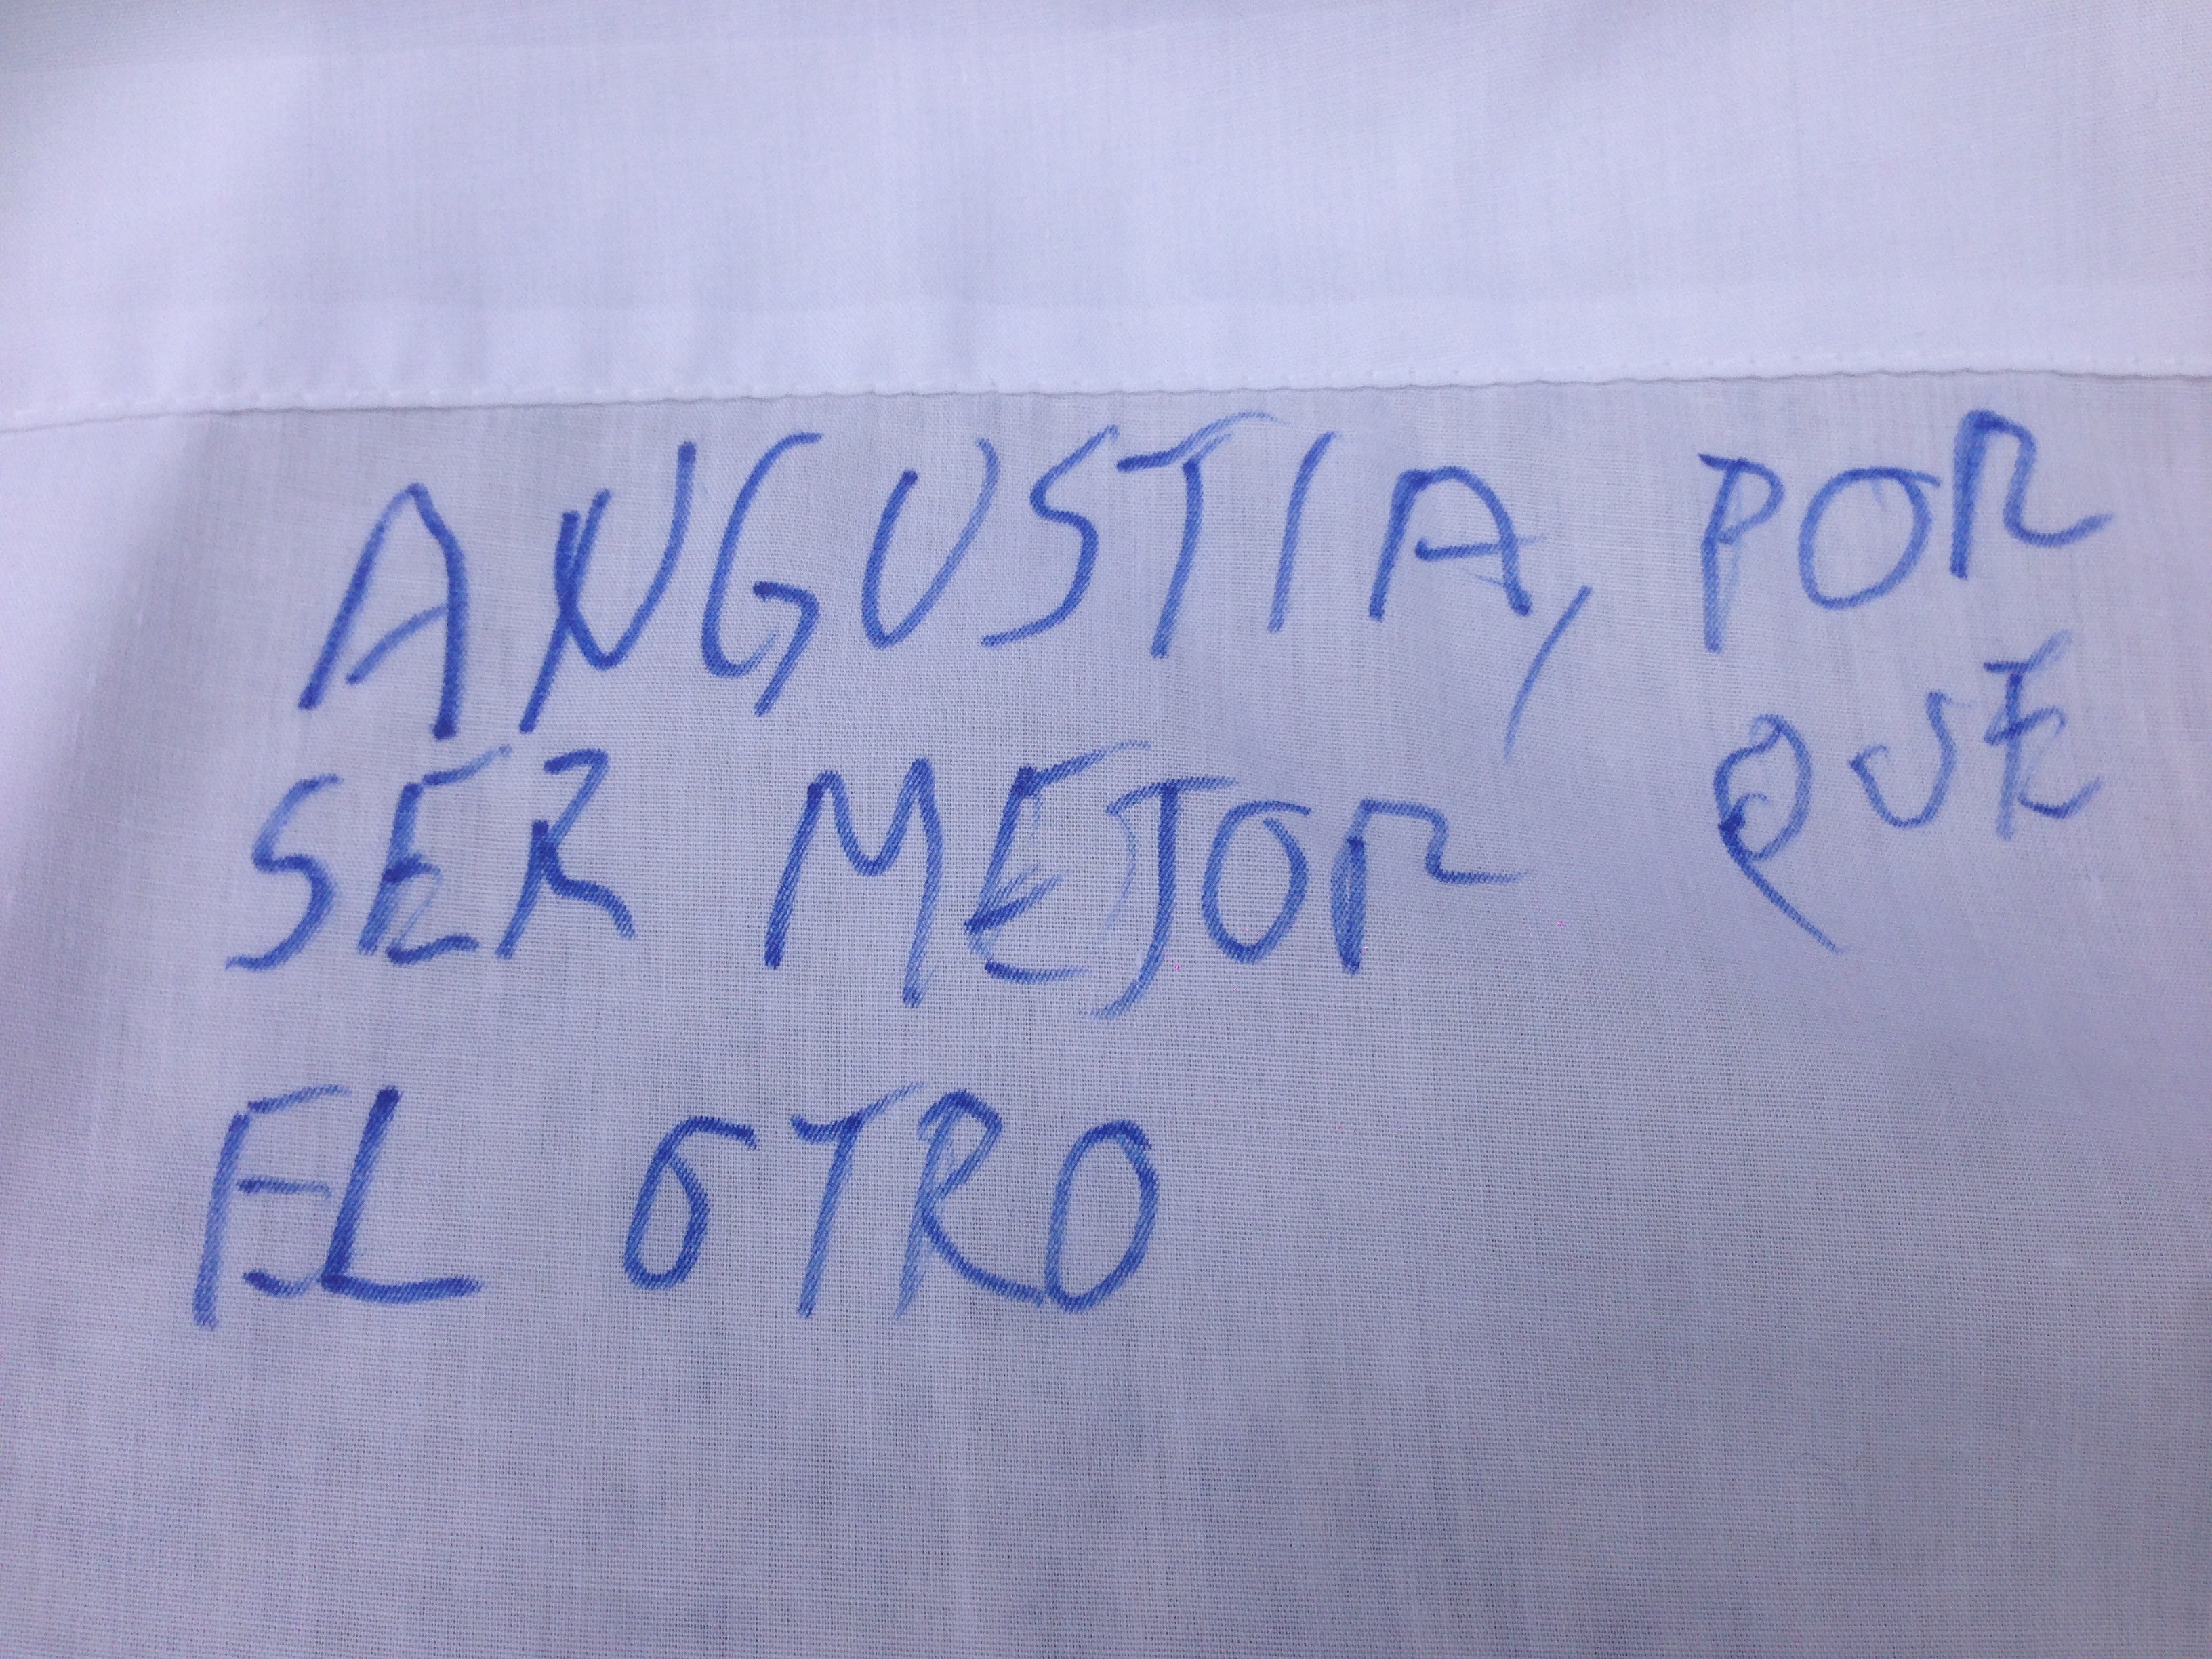 ANGUSTIA, POR
SER MEJOR QUE
EL OTRO